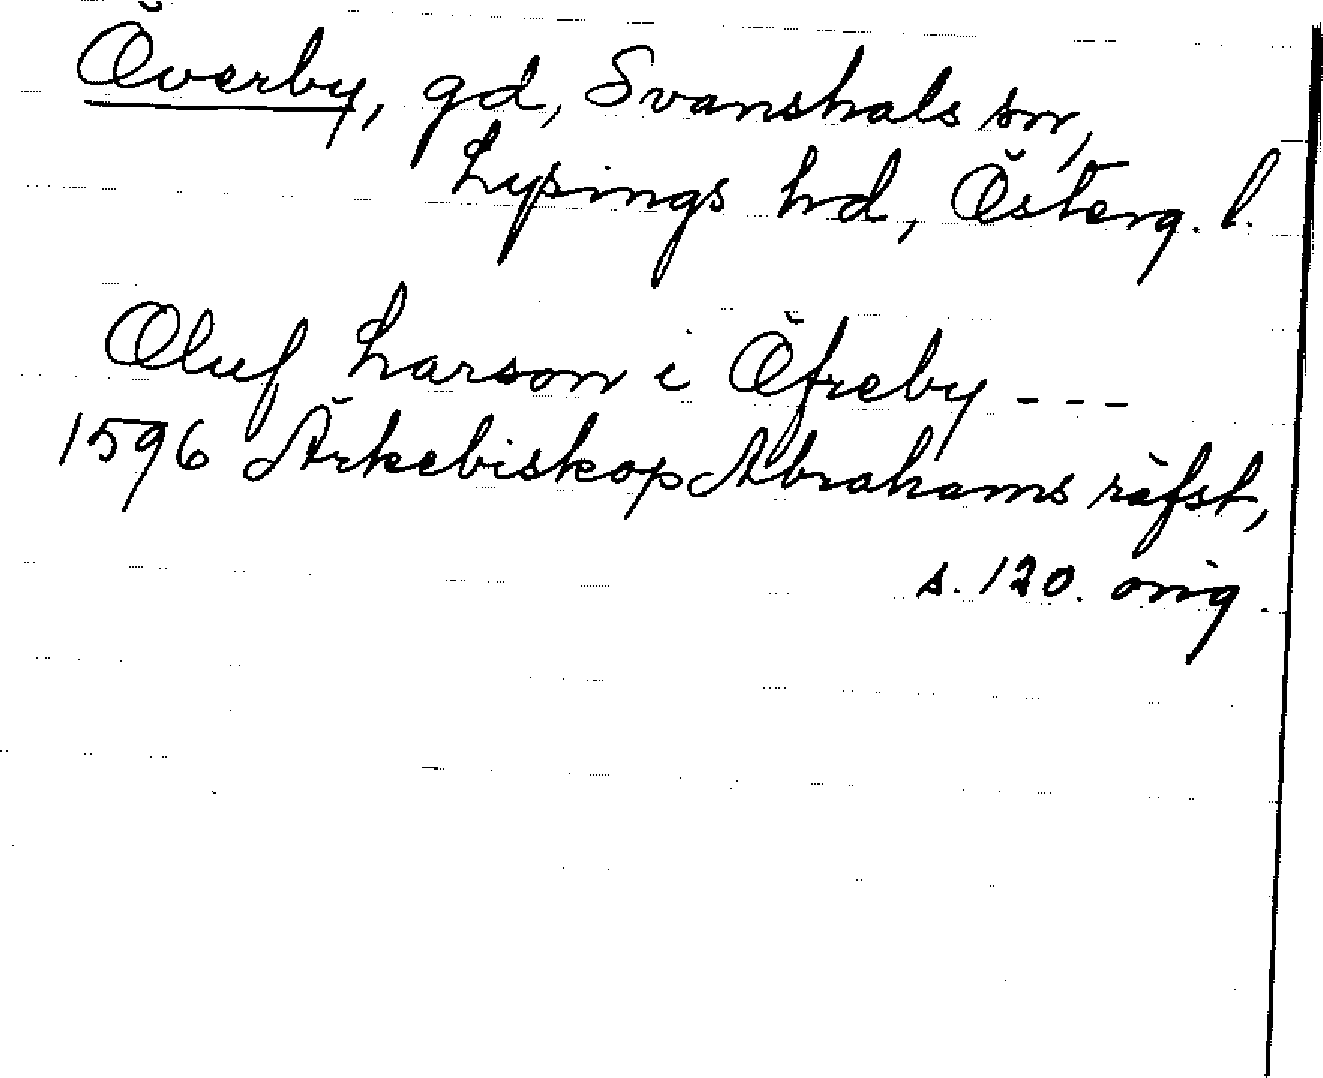 Överby, gd, Svanshals sn,
Lysings hd, Österg. l.
Oluf Larson i Öfreby ---
1596 Ärkebiskop Abrahams räfst,
s. 120. orig.